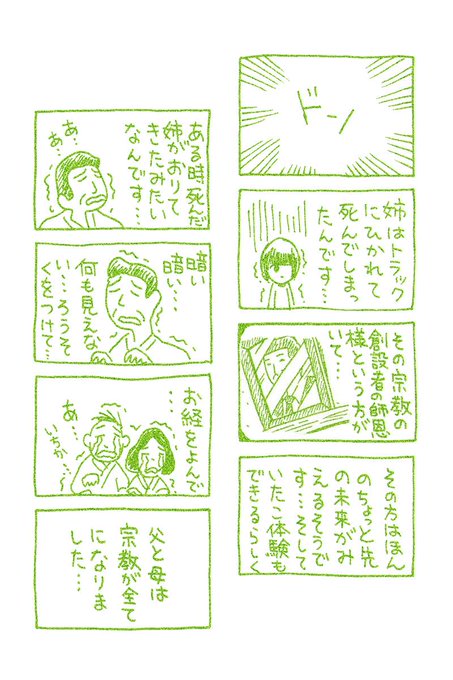 ドーン
姉はトラック
にひかれて
死んでしまっ
たんです…
その宗教の
創設者の師恩
様という方が
いて…
その方はほん
のちょっと先
の未来がみ
えるそうで
す…そして
いたこ体験も
できるらしく
ある時死んだ
姉がおりて
きたみたい
なんです…
あ…
あ…
暗い
暗い…
何も見えな
い…ろうそ
くをつけて…
お経をよんで
…
あ…
いちか…
父と母は
宗教が全て
になりま
した…